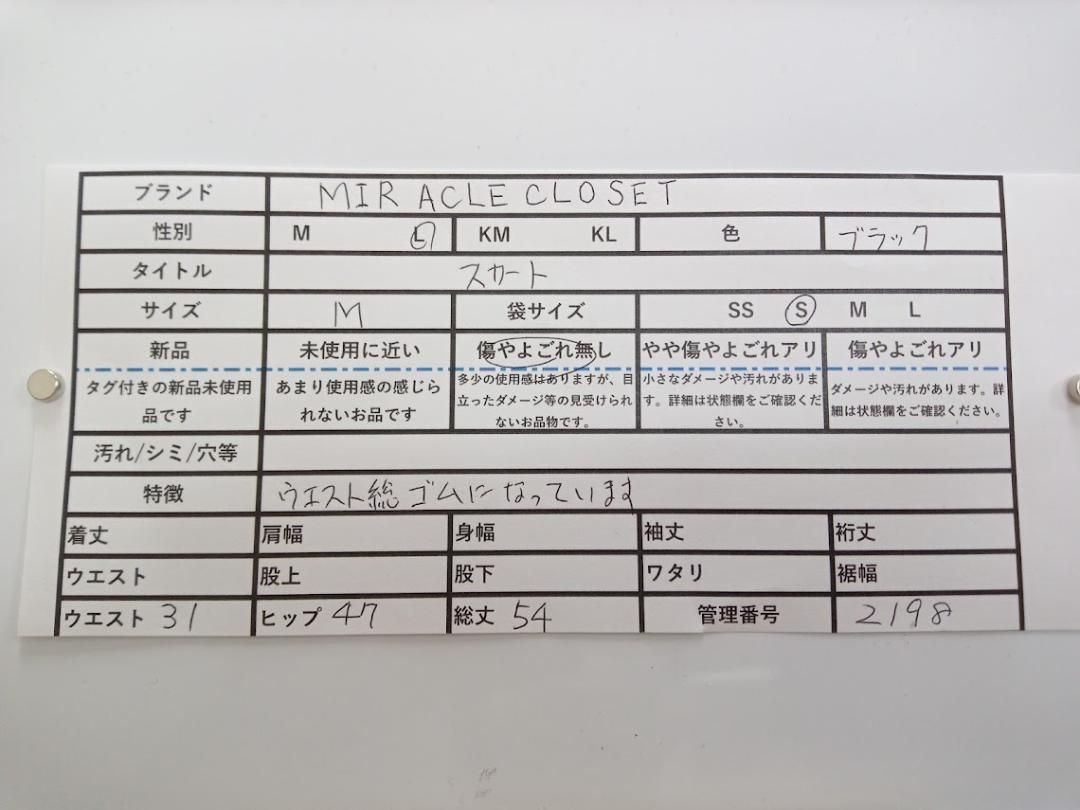 ブランド MIRACLE CLOSET
性別 M L KM KL 色 ブラック
タイトル スカート
サイズ M 袋サイズ SS S M L
新品 未使用に近い 傷やよごれ無し やや傷やよごれアリ 傷やよごれアリ
タグ付きの新品未使用品です あまり使用感の感じられないお品です 多少の使用感はありますが、目立ったダメージ等の見受けられないお品物です。 小さなダメージや汚れがあります。詳細は状態欄をご確認ください。 ダメージや汚れがあります。詳細は状態欄をご確認ください。
汚れ/シミ/穴等
特徴 ウエスト総ゴムになっています
着丈 肩幅 身幅 袖丈 裄丈
ウエスト 股上 股下 ワタリ 裾幅
ウエスト 31 ヒップ 47 総丈 54 管理番号 2198